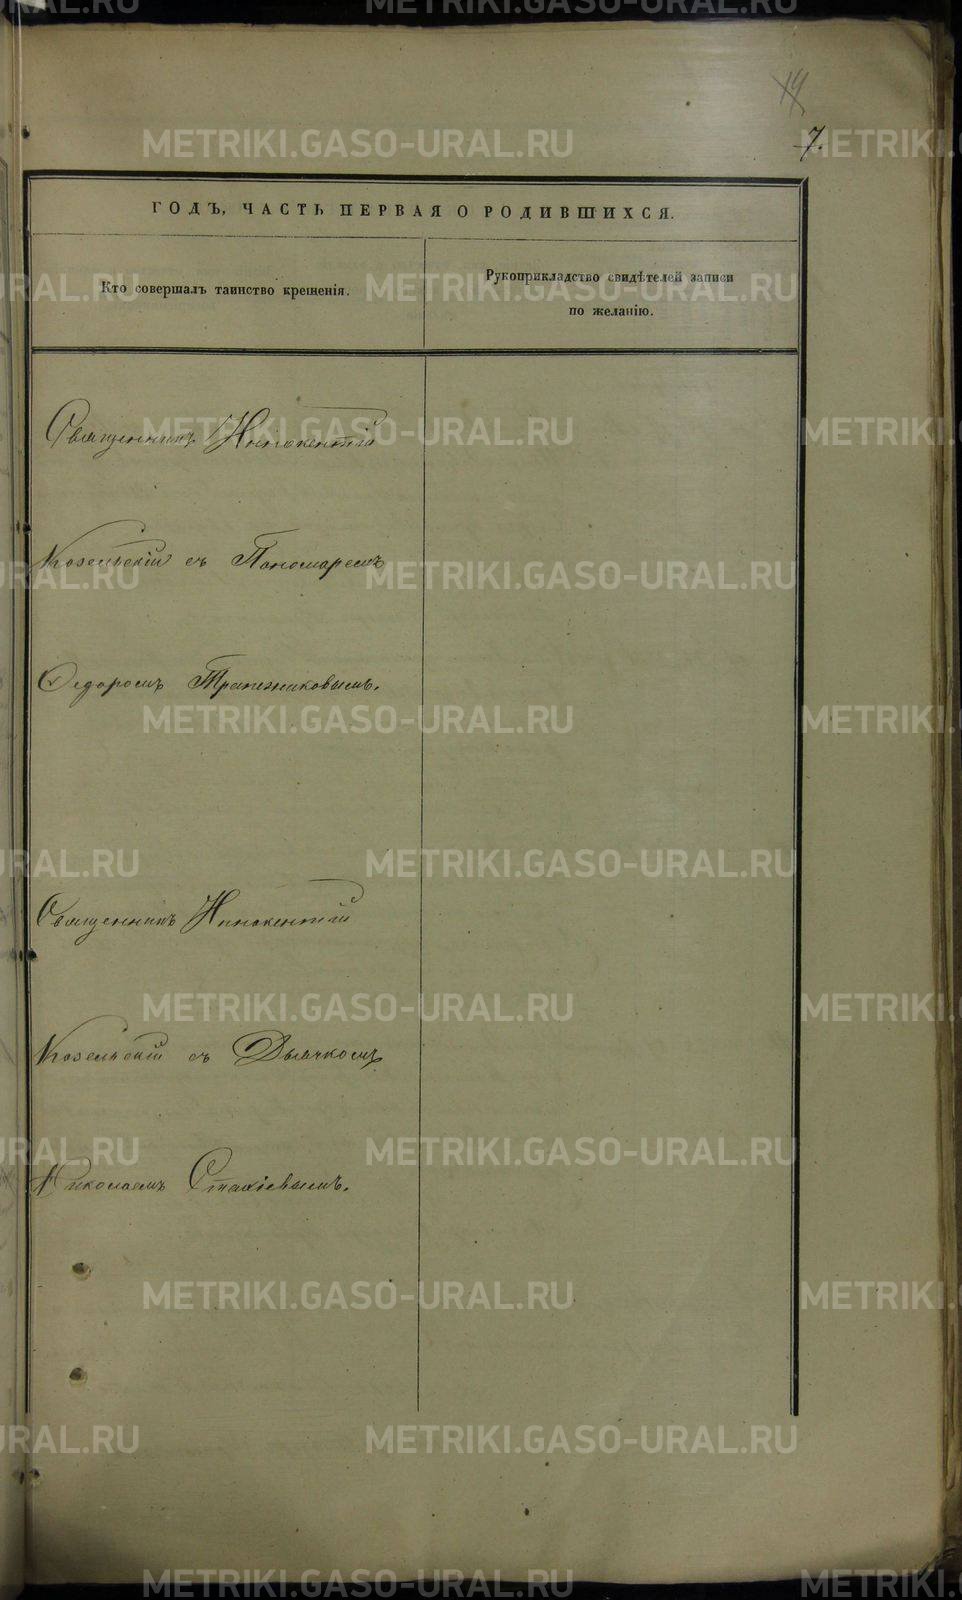 19
7.
ГОДЪ, ЧАСТЬ ПЕРВАЯ О РОДИВШИХСЯ.
Кто совершалъ таинство крещенія.
Рукоприкладство свидѣтелей записи
по желанію.
Священникъ Иннокентій
Козельскій съ Пономаремъ
Ѳедоромъ Трапезниковымъ.
Священникъ Иннокентій
Козельскій съ Дьячкомъ
Николаемъ Стахіевымъ.
METRIKI.GASO-URAL.RU